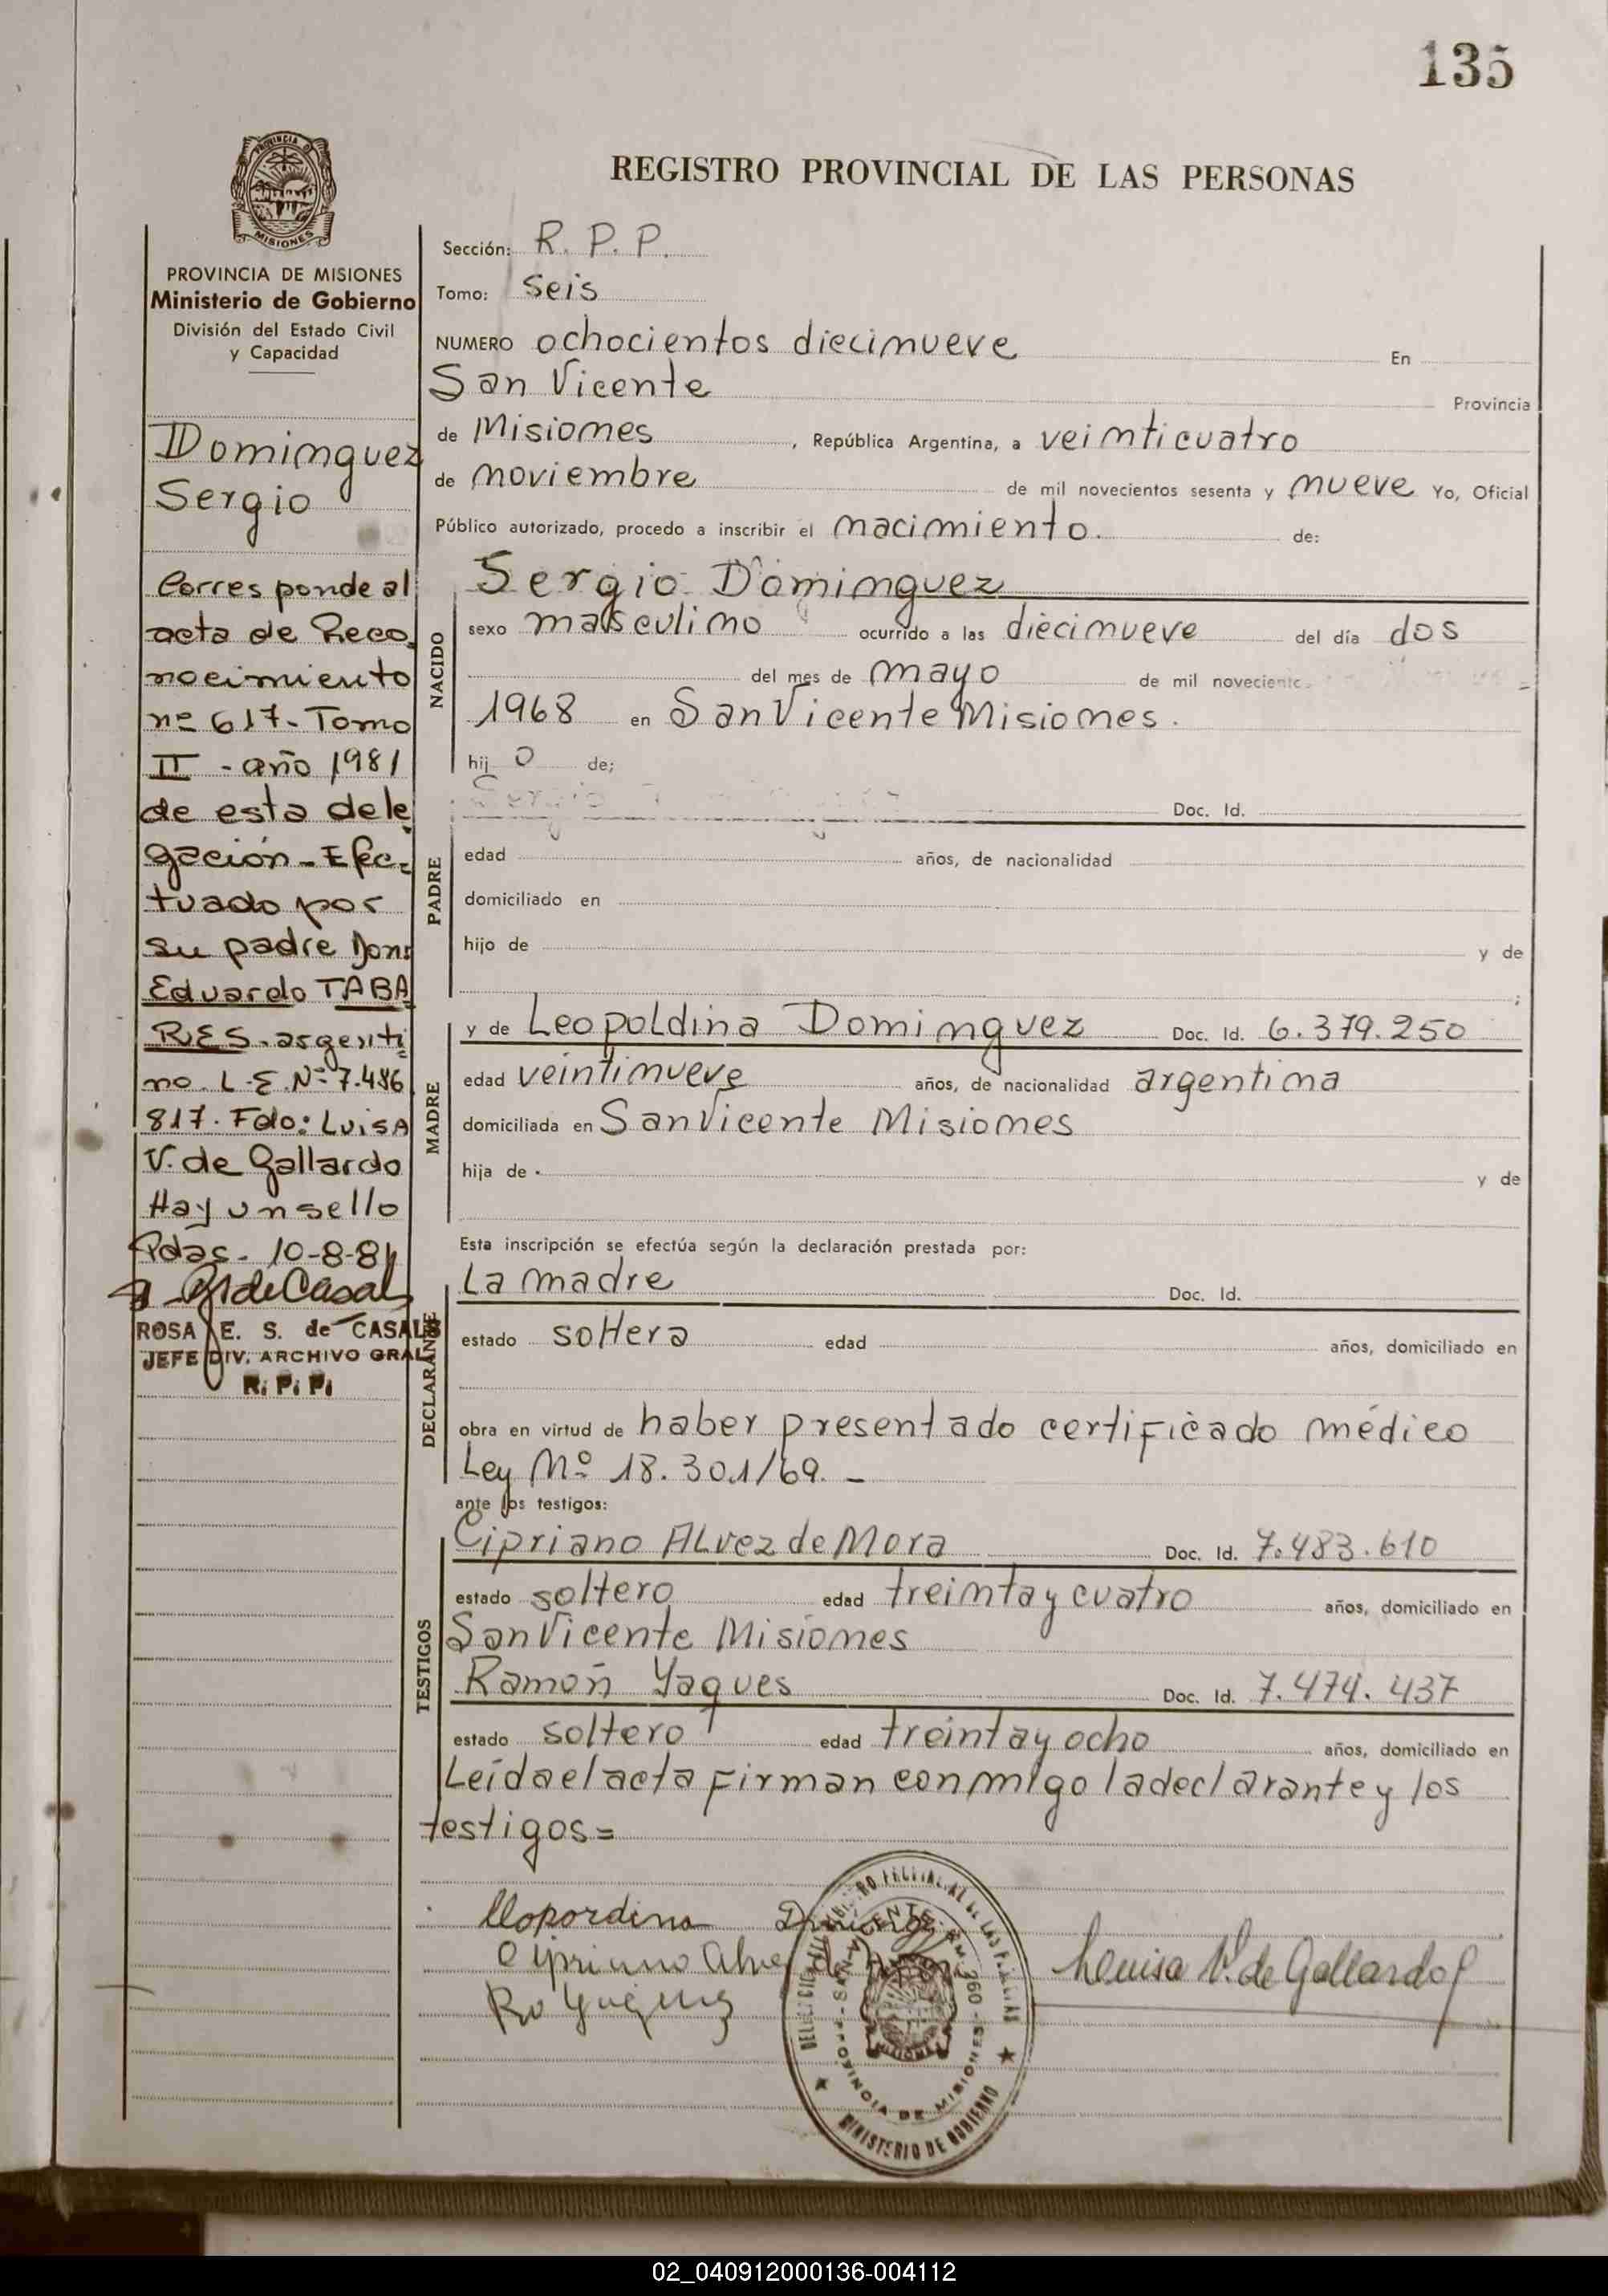 135
REGISTRO PROVINCIAL DE LAS PERSONAS
PROVINCIA DE MISIONES
Ministerio de Gobierno
División del Estado Civil
y Capacidad
Dominguez
Sergio
Corresponde al
acta de Reco-
nocimiento
nº 617- Tomo
II - año 1981
de esta dele
gación - Efec-
tuado por
su padre Don:
Eduardo TABA
RES - argenti
no. L.E. Nº 7.486
817. Fdo: Luisa
V. de Gallardo
Hay un sello
Pdas - 10-8-81
ROSA E. S. de CASALS
JEFE DIV. ARCHIVO GRAL
R. P. P.
Sección: R. P. P.
Tomo: seis
NUMERO ochocientos diecinueve En
San Vicente Provincia
de Misiones, República Argentina, a veinticuatro
de noviembre de mil novecientos sesenta y nueve Yo, Oficial
Público autorizado, procedo a inscribir el nacimiento. de:
NACIDO
Sergio Dominguez
sexo masculino ocurrido a las diecinueve del día dos
del mes de mayo de mil noveciento
1968 en San Vicente Misiones.
hijo de;
PADRE
Sergio Doc. Id.
edad años, de nacionalidad
domiciliado en
hijo de y de
;
MADRE
y de Leopoldina Dominguez Doc. Id. 6.379.250
edad veintinueve años, de nacionalidad argentina
domiciliada en San Vicente Misiones
hija de y de
Esta inscripción se efectúa según la declaración prestada por:
DECLARANTE
La madre Doc. Id.
estado soltera edad años, domiciliado en
obra en virtud de haber presentado certificado médico
Ley Nº 18.301/69. -
ante los testigos:
TESTIGOS
Cipriano Alvez de Mora Doc. Id. 7.483.610
estado soltero edad treinta y cuatro años, domiciliado en
San Vicente Misiones
Ramón Yaques Doc. Id. 7.474.437
estado soltero edad treinta y ocho años, domiciliado en
Leída el acta firman conmigo la declarante y los
testigos =
Cipriano Alve de
Louisa V. de Gallardo
SAN VICENTE
PROVINCIA DE MISIONES
MINISTERIO DE GOBIERNO
02_040912000136-004112